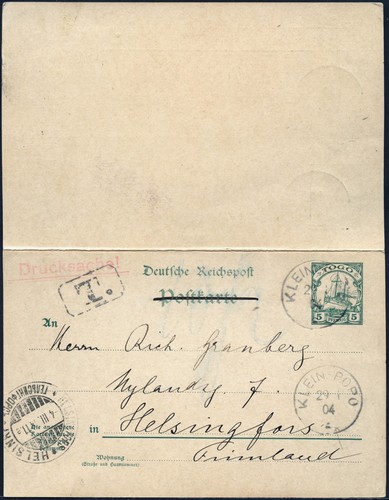 Drucksache!
T.
Deutsche Reichspost
Postkarte
TOGO
5 5
KLEIN-
An
Herrn Rich. Granberg
Nylandsg. 7.
in Helsingfors
Finnland
Wohnung
(Straße und Hausnummer)
KLEIN-POPO
29
04
HELSIN
4 III